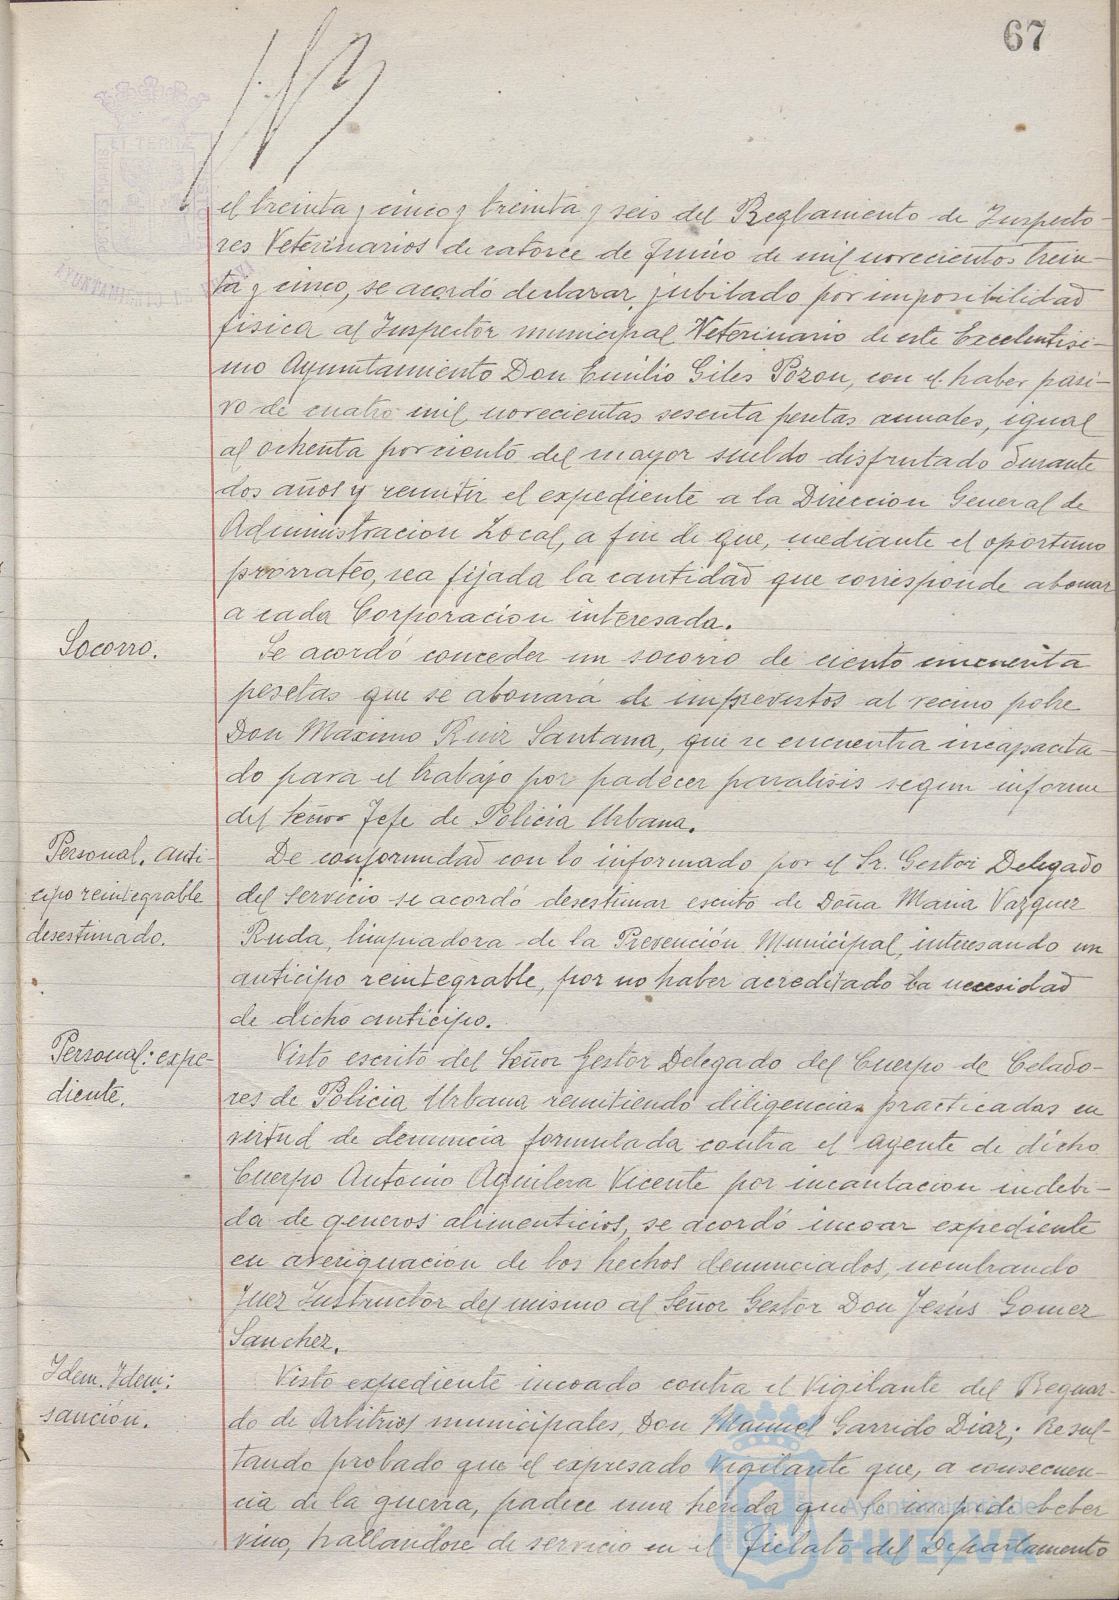 67
el treinta y cinco y treinta y seis del Reglamento de Inspecto-
res Veterinarios de catorce de Junio de mil novecientos trein-
ta y cinco, se acordó declarar jubilado por imposibilidad
fisica al Inspector municipal Veterinario de este Excelentisi-
mo Ayuntamiento Don Emilio Giles Pozon, con el haber pasi-
vo de cuatro mil novecientas sesenta pesetas anuales, igual
al ochenta por ciento del mayor sueldo disfrutado durante
dos años y remitir el expediente a la Direccion General de
Administracion Local, a fin de que, mediante el oportuno
prorrateo, sea fijada la cantidad que corresponde abonar
a cada Corporacion interesada.
Socorro.
Se acordó conceder un socorro de ciento cincuenta
pesetas que se abonará de imprevistos al vecino pobre
Don Maximo Ruiz Santana, que se encuentra incapacita-
do para el trabajo por padecer paralisis segun informe
del señor Jefe de Policia Urbana.
Personal. Anti-
cipo reintegrable
desestimado.
De conformidad con lo informado por el Sr. Gestor Delegado
del servicio se acordó desestimar escrito de Doña Maria Vazquez
Ruda, limpiadora de la Prevención Municipal, interesando un
anticipo reintegrable, por no haber acreditado la necesidad
de dicho anticipo.
Personal: expe-
diente.
Visto escrito del Señor Gestor Delegado del Cuerpo de Celado-
res de Policia Urbana remitiendo diligencias practicadas en
virtud de denuncia formulada contra el agente de dicho
Cuerpo Antonio Aguilera Vicente por incautacion indebi-
da de generos alimenticios, se acordó incoar expediente
en averiguación de los hechos denunciados, nombrando
Juez Instructor del mismo al Señor Gestor Don Jesús Gomez
Sanchez.
Idem. Idem:
sanción.
Visto expediente incoado contra el Vigilante del Resguar-
do de Arbitrios municipales, Don Manuel Garrido Diaz; Resul-
tando probado que el expresado Vigilante que, a consecuen-
cia de la guerra, padece una herida que le impide beber
vino, hallandose de servicio en el Fielato del Departamento
Ayuntamiento de
HUELVA